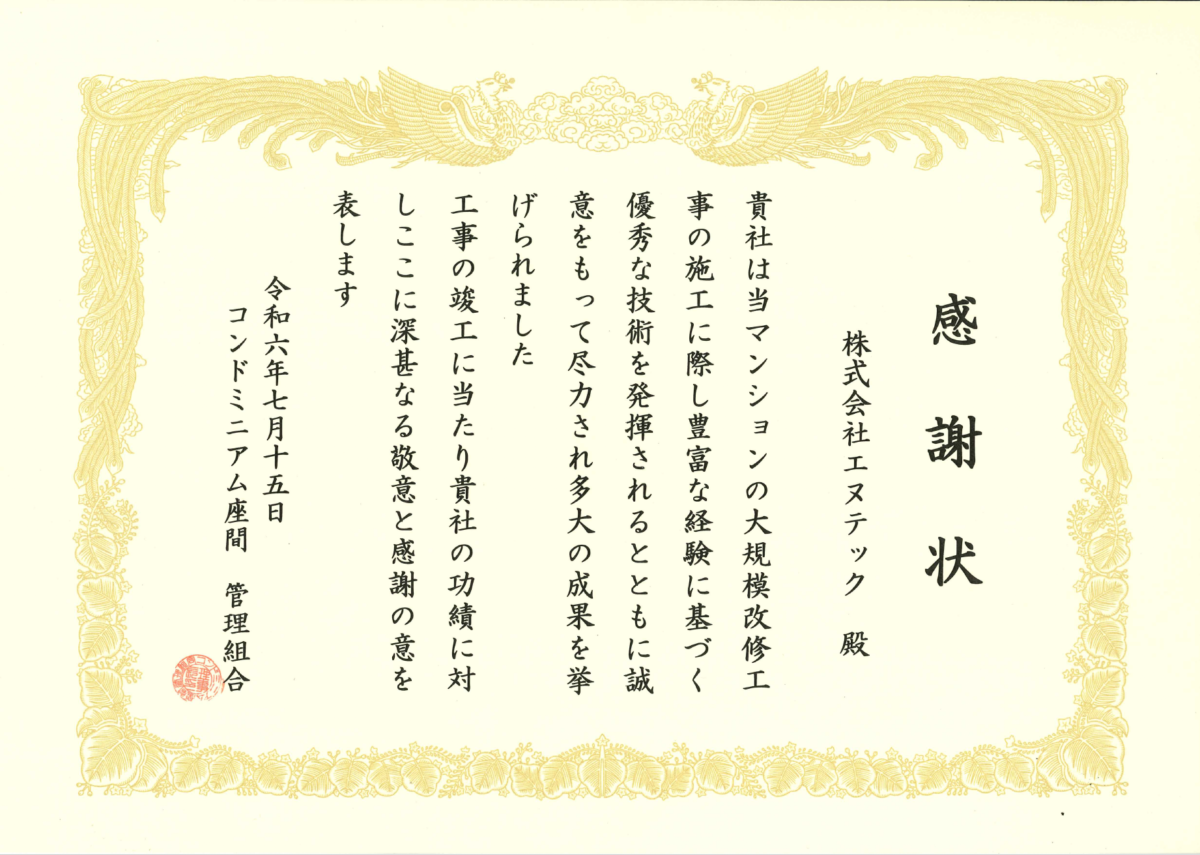 感謝状
株式会社エヌテック　殿
貴社は当マンションの大規模改修工
事の施工に際し豊富な経験に基づく
優秀な技術を発揮されるとともに誠
意をもって尽力され多大の成果を挙
げられました
工事の竣工に当たり貴社の功績に対
しここに深甚なる敬意と感謝の意を
表します
令和六年七月十五日
コンドミニアム座間　管理組合